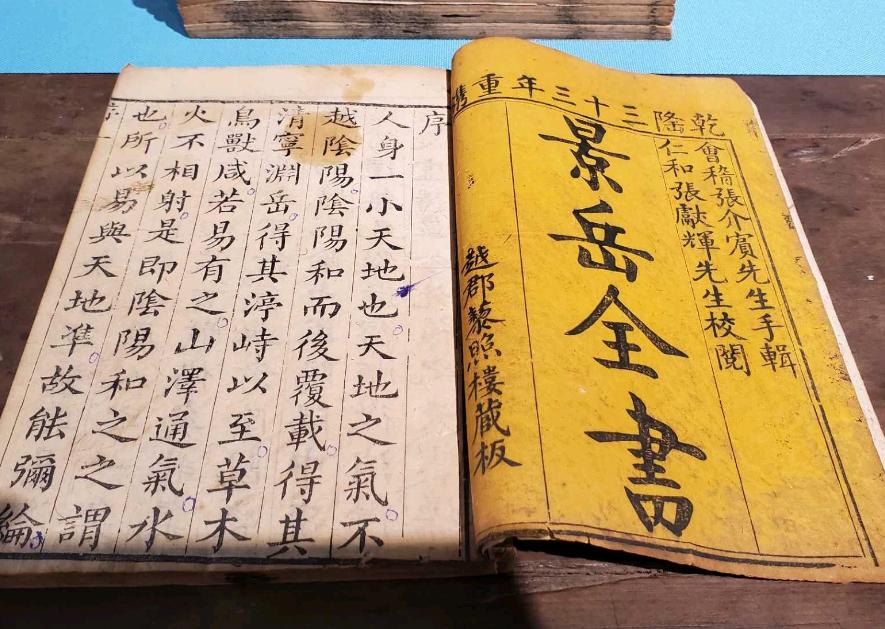 乾隆三十三年重
會稽張介賓先生手輯
仁和張獻輝先生校閱
景岳全書
越郡藜照樓藏板
序
人身一小天地也天地之氣不
越陰陽陰陽和而後覆載得其
清寧淵岳得其渟峙以至草木
鳥獸咸若易有之山澤通氣水
火不相射是即陰陽和之之謂
也所以易與天地準故能彌綸